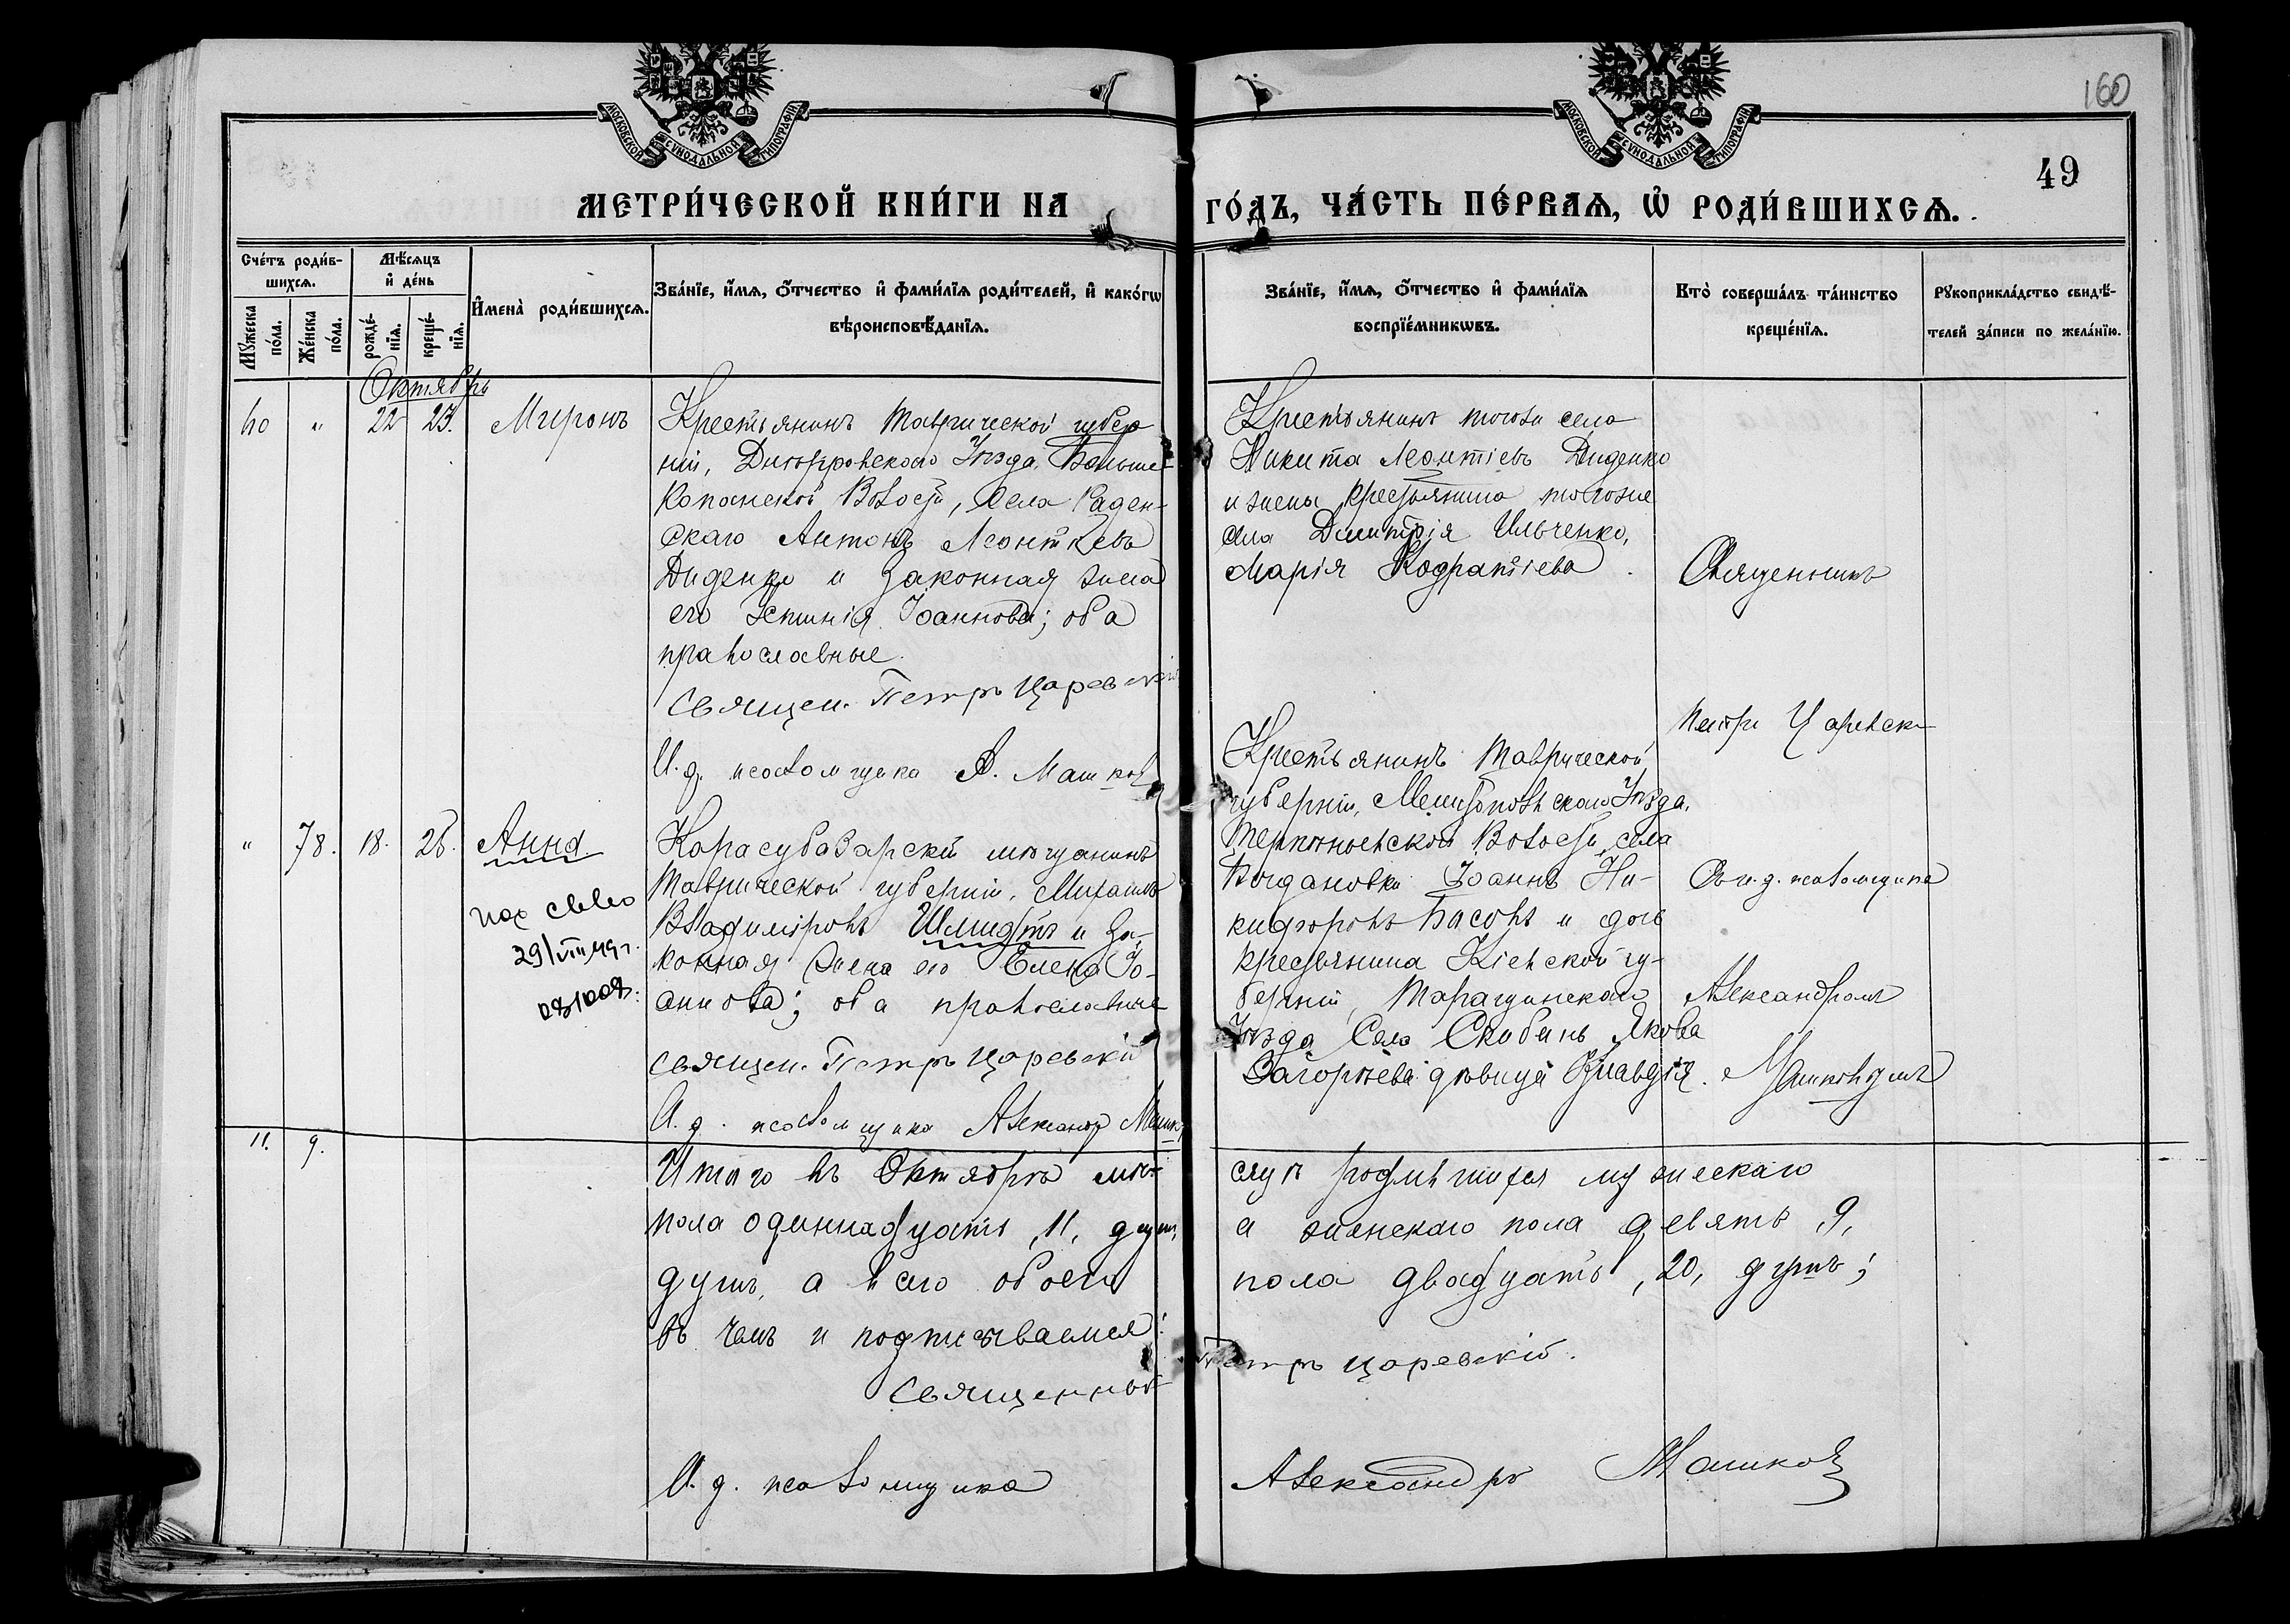 160
49
МОСКОВСКОЙ СѴНОДАЛЬНОЙ ТИПОГРАФІИ
МОСКОВСКОЙ СѴНОДАЛЬНОЙ ТИПОГРАФІИ
МЕТРИ́ЧЕСКОЙ КНИ́ГИ НА
ГО́ДЪ, ЧА́СТЬ ПЕ́РВАѦ, Ѡ҆ РОДИ́ВШИХСѦ.
Сче́тъ роди́в-
шихсѧ.
Мꙋ́жеска по́ла.
Же́нска по́ла.
Мѣ́сѧцъ
и҆ де́нь
рожде́-нїѧ.
креще́-нїѧ.
И҆мена̀ роди́вшихсѧ.
Зва́нїе, и҆́мѧ, ѻ҆́тчество и҆ фами́лїѧ роди́телей, и҆ како́гѡ
вѣроисповѣ́данїѧ.
Зва́нїе, и҆́мѧ, ѻ҆́тчество и҆ фами́лїѧ
воспрїе́мникѡвъ.
Кто̀ соверша́лъ та́инство
креще́нїѧ.
Рꙋкоприкла́дство свидѣ́-
телей за́писи по жела́нїю.
Октябрь
60 " 22 23. Миронъ
Крестьянинъ Таврической губер
ніи, Днѣпровскаго Уѣзда, Больше-
Копанской Волости, села Раден-
скаго Антонъ Леонтіевъ
Диденко и законная жена
его Іоаннова; оба
православные.
Священ. Петръ Царевскій
И. д. псаломщика А. Машков
Крестьянинъ тогоже села
Никита Леонтіевъ Диденко
и жена крестьянина тогоже
села Димитрія Ильченко,
Марія Кодратіева.
Священникъ
Петръ Царевскі
" 78. 18. 26. Анна.
29/VIII 49 г.
Карасубазарскій мѣщанинъ
Таврической губерніи, Михаилъ
Владиміровъ Шмидтъ и за-
конная жена его Елена Іо-
аннова; оба православные
Священ. Петръ Царевскій
И. д. псаломщика Александр Машк
Крестьянинъ Таврической
губерніи, Мелитопольскаго Уѣзда,
Терпѣньевской Волости, села
Богдановки Іоаннъ Ни-
кифоровъ Басовъ и дочь
крестьянина Кіевской гу-
берніи, Таращанскаго
Уѣзда Села Скибинъ Якова
девица Клавдія.
Съ и. д. псаломщика
Александромъ
Машковымъ
11. 9.
Итого въ Октябрѣ мѣ-
сяцѣ родившихся мужескаго
пола одиннадцать, 11, душъ,
а женскаго пола девять, 9,
душъ, а всего обоего
пола двадцать, 20, душъ;
въ чемъ и подписываемся:
Священникъ
Петръ Царевскій.
И. д. псаломщика
Александръ Машков